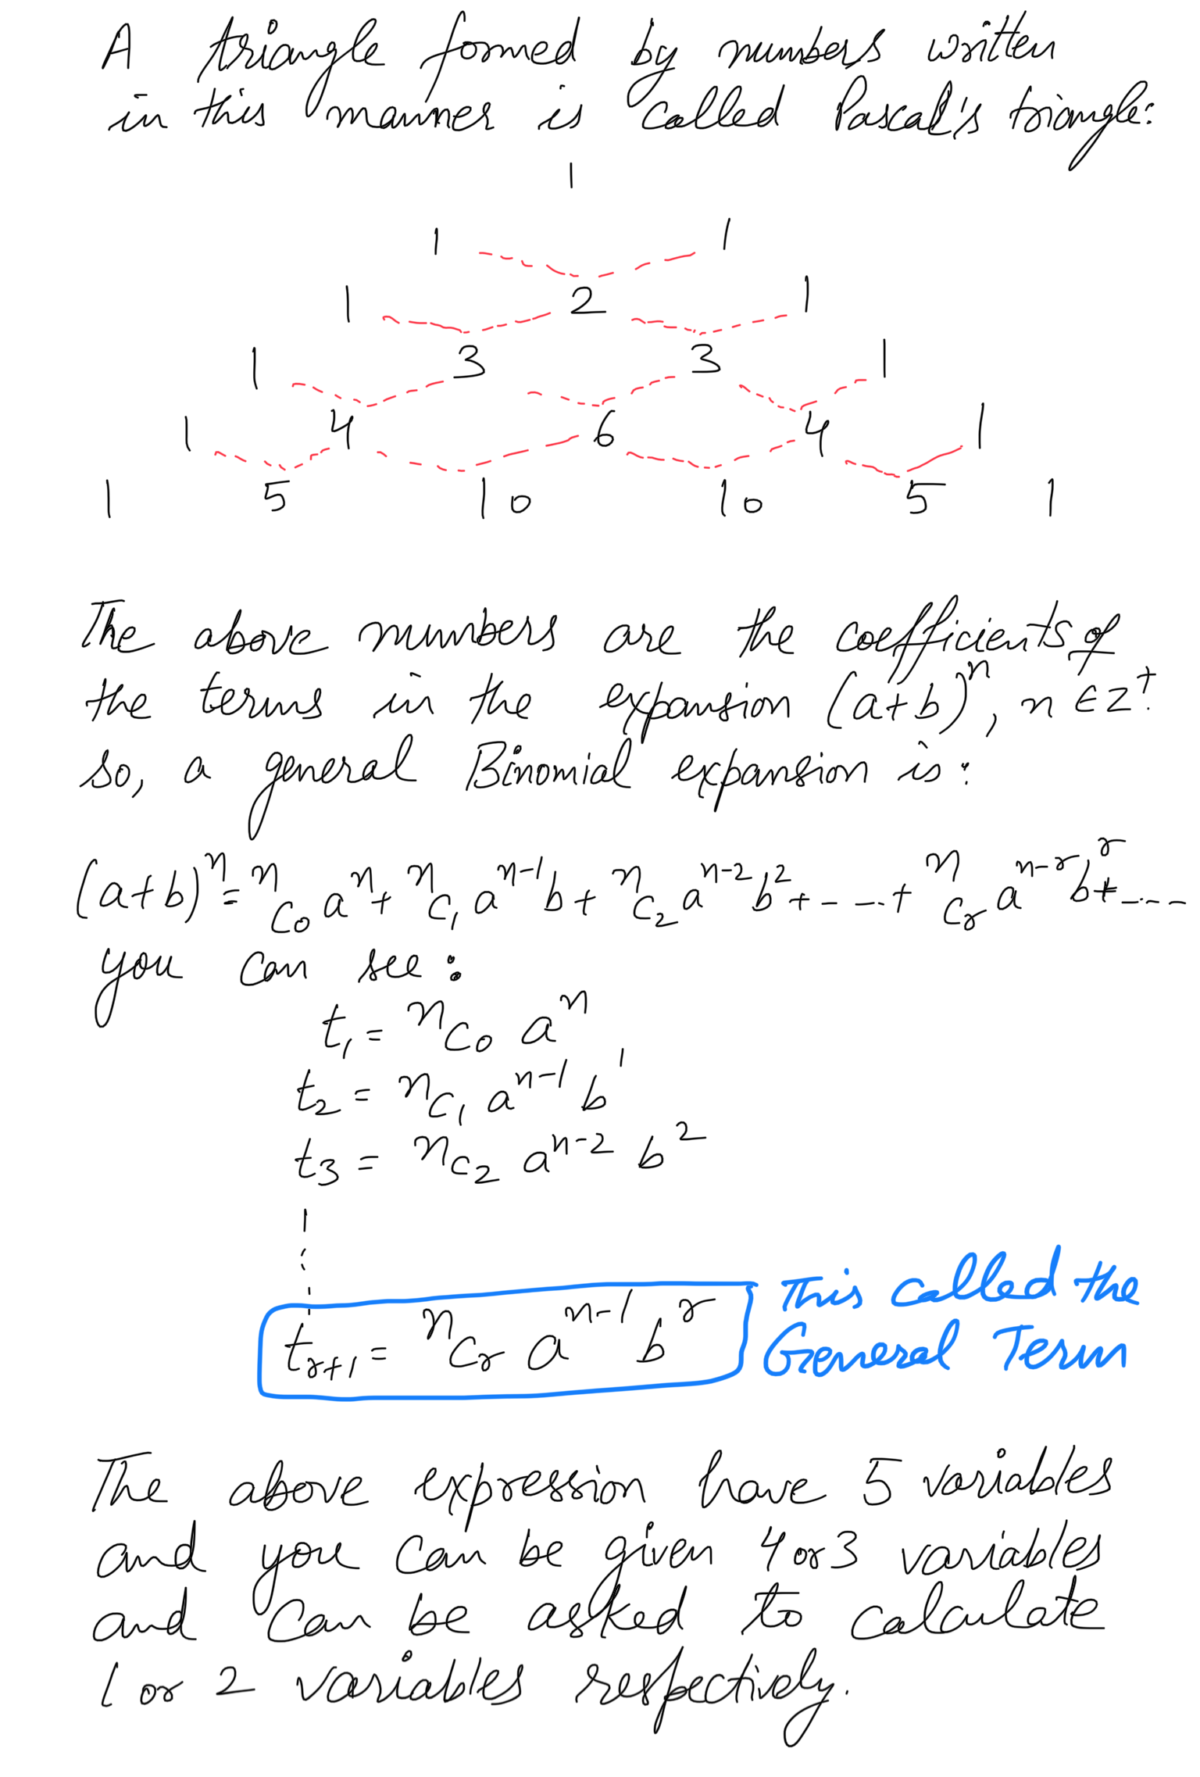 A triangle formed by numbers written
in this manner is called Pascal's triangle:
1
1 1
1 2 1
1 3 3 1
1 4 6 4 1
1 5 10 10 5 1
The above numbers are the coefficients of
the terms in the expansion (a+b)ⁿ, n ∈ Z⁺.
so, a general Binomial expansion is:
(a+b)ⁿ = ⁿC₀ aⁿ + ⁿC₁ aⁿ⁻¹b + ⁿC₂ aⁿ⁻²b² + - - - + ⁿCᵣ aⁿ⁻ʳbʳ + - - -
you can see:
t₁ = ⁿC₀ aⁿ
t₂ = ⁿC₁ aⁿ⁻¹ b¹
t₃ = ⁿC₂ aⁿ⁻² b²
tᵣ₊₁ = ⁿCᵣ aⁿ⁻¹ bʳ This called the
General Term
The above expression have 5 variables
and you can be given 4 or 3 variables
and can be asked to calculate
1 or 2 variables respectively.